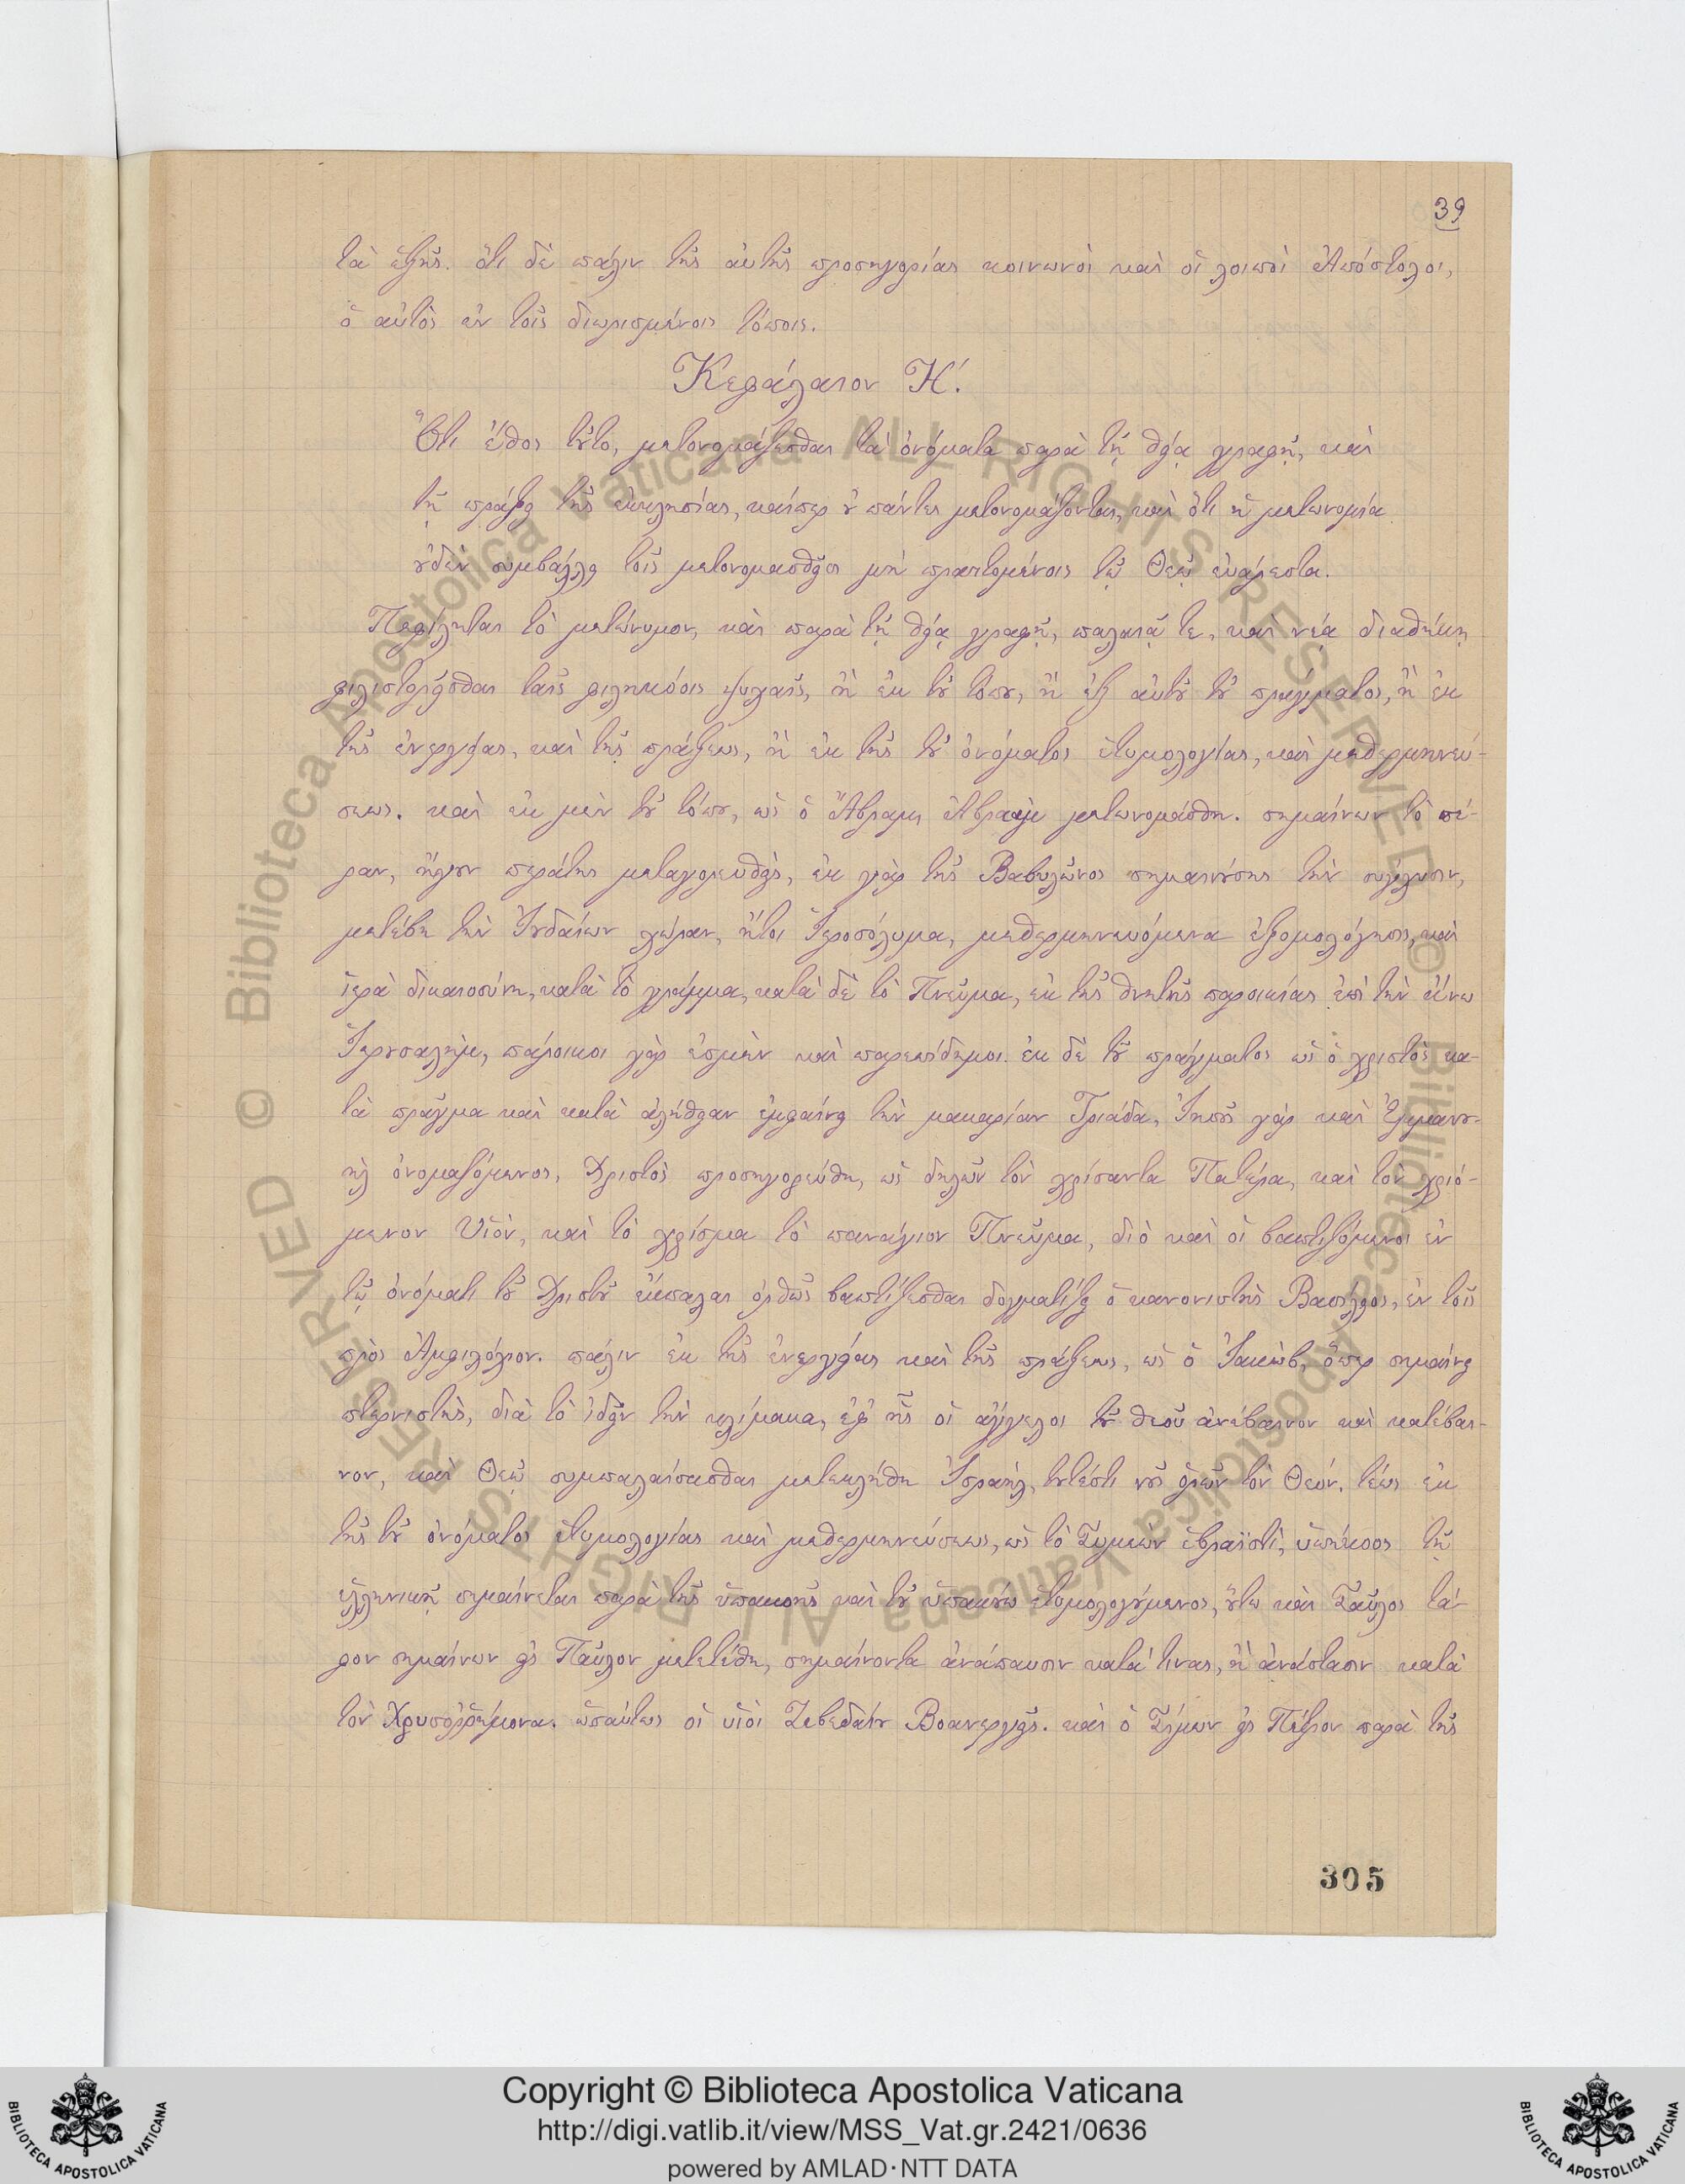 39
τὰ ἑξῆς. ὅτι δὲ πάλιν τῆς αὐτῆς προσηγορίας κοινωνοὶ καὶ οἱ λοιποὶ Ἀπόστολοι,
ὁ αὐτὸς ἐν τοῖς διωρισμένοις τόποις.
Κεφάλαιον Η΄.
Ὅτι ἔθος τοῦτο, μετονομάζεσθαι τὰ ὀνόματα παρὰ τῇ θείᾳ γραφῇ, καὶ
τῇ πράξει τῆς ἐκκλησίας, καίπερ οὐ πάντες μετονομάζονται, καὶ ὅτι ἡ μετωνομία
οὐδὲν συμβάλλει τοῖς μετονομασθεῖσι μὴ πραττομένοις τῷ Θεῷ εὐάρεστα.
Πεφίληται τὸ μετώνυμον, καὶ παρὰ τῇ θείᾳ γραφῇ, παλαιᾷ τε, καὶ νέᾳ διαθήκῃ
φιλιστορεῖσθαι ταῖς φιληκόοις ψυχαῖς, ἢ ἐκ τοῦ τόπου, ἢ ἐξ αὐτοῦ τοῦ πράγματος, ἢ ἐκ
τῆς ἐνεργείας, καὶ τῆς πράξεως, ἢ ἐκ τῆς τοῦ ὀνόματος ἐτυμολογίας, καὶ μεθερμηνεύ-
σεως. καὶ ἐκ μὲν τοῦ τόπου, ὡς ὁ Ἄβραμ Ἀβραὰμ μετωνομάσθη. σημαίνων τὸ πέ-
ραν, ἤγουν περάτης μεταγορευθεὶς, ἐκ γὰρ τῆς Βαβυλῶνος σημαινούσης τὴν σύγχυσιν,
μετέβη τὴν Ἰουδαίων χώραν, ἤτοι Ἱεροσόλυμα, μεθερμηνευόμενα ἐξομολόγησις, καὶ
ἱερὰ δικαιοσύνη, κατὰ τὸ γράμμα, κατὰ δὲ τὸ Πνεῦμα, ἐκ τῆς θνητῆς παροικίας ἐπὶ τὴν ἄνω
Ἱερουσαλὴμ, πάροικοι γὰρ ἐσμὲν καὶ παρεπίδημοι. ἐκ δὲ τοῦ πράγματος ὡς ὁ χριστὸς κα-
τὰ πρᾶγμα καὶ κατὰ ἀλήθειαν ἐμφαίνει τὴν μακαρίαν Τριάδα, Ἰησοῦς γὰρ καὶ Ἐμμανου-
ὴλ ὀνομαζόμενος, Χριστὸς προσηγορεύθη, ὡς δηλῶν τὸν χρίσαντα Πατέρα, καὶ τὸν χριό-
μενον Υἱὸν, καὶ τὸ χρίσμα τὸ πανάγιον Πνεῦμα, διὸ καὶ οἱ βαπτιζόμενοι ἐν
τῷ ὀνόματι τοῦ Χριστοῦ ἔκπαλαι ὀρθῶς βαπτίζεσθαι δογματίζει ὁ κανονιστὴς Βασίλειος, ἐν τοῖς
πρὸς Ἀμφιλόχιον. πάλιν ἐκ τῆς ἐνεργείας καὶ τῆς πράξεως, ὡς ὁ Ἰακὼβ, ὅπερ σημαίνει
πτερνιστὴς, διὰ τὸ ἰδεῖν τὴν κλίμακα, ἐφ' ἧς οἱ ἄγγελοι τοῦ θεοῦ ἀνέβαινον καὶ κατέβαι-
νον, καὶ Θεῷ συμπαλαίσασθαι μετεκλήθη Ἰσραὴλ, τουτέστι νοῦς ὁρῶν τὸν Θεόν. τέως ἐκ
τῆς τοῦ ὀνόματος ἐτυμολογίας καὶ μεθερμηνεύσεως, ὡς τὸ Συμεὼν ἑβραϊστὶ, ὑπήκοος τῇ
ἑλληνικῇ σημαίνεται παρὰ τῆς ὑπακοῆς καὶ τοῦ ὑπακούω ἐτυμολογούμενος, οὕτω καὶ Σαῦλος τά-
φον σημαίνων εἰς Παῦλον μετετέθη, σημαίνοντα ἀνάπαυσιν κατά τινας, ἢ ἀνάστασιν κατὰ
τὸν Χρυσοῤῥήμονα. ὡσαύτως οἱ υἱοὶ Ζεβεδαίου Βοανεργεῖς. καὶ ὁ Σίμων εἰς Πέτρον παρὰ τῆς
305
Copyright © Biblioteca Apostolica Vaticana
http://digi.vatlib.it/view/MSS_Vat.gr.2421/0636
powered by AMLAD·NTT DATA
BIBLIOTECA APOSTOLICA VATICANA
BIBLIOTECA APOSTOLICA VATICANA
© Biblioteca Apostolica Vaticana ALL RIGHTS RESERVED
© Biblioteca Apostolica Vaticana ALL RIGHTS RESERVED